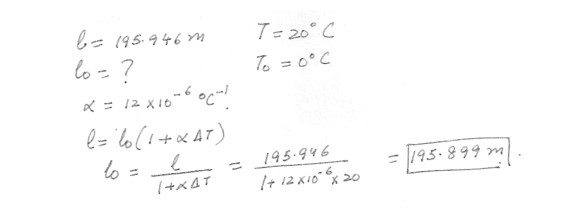 l = 195.946 m T = 20°C
l₀ = ? T₀ = 0°C
α = 12 × 10⁻⁶ °C⁻¹
l = l₀(1 + αΔT)
l₀ = l / (1 + αΔT) = 195.946 / (1 + 12 × 10⁻⁶ × 20) = 195.899 m.